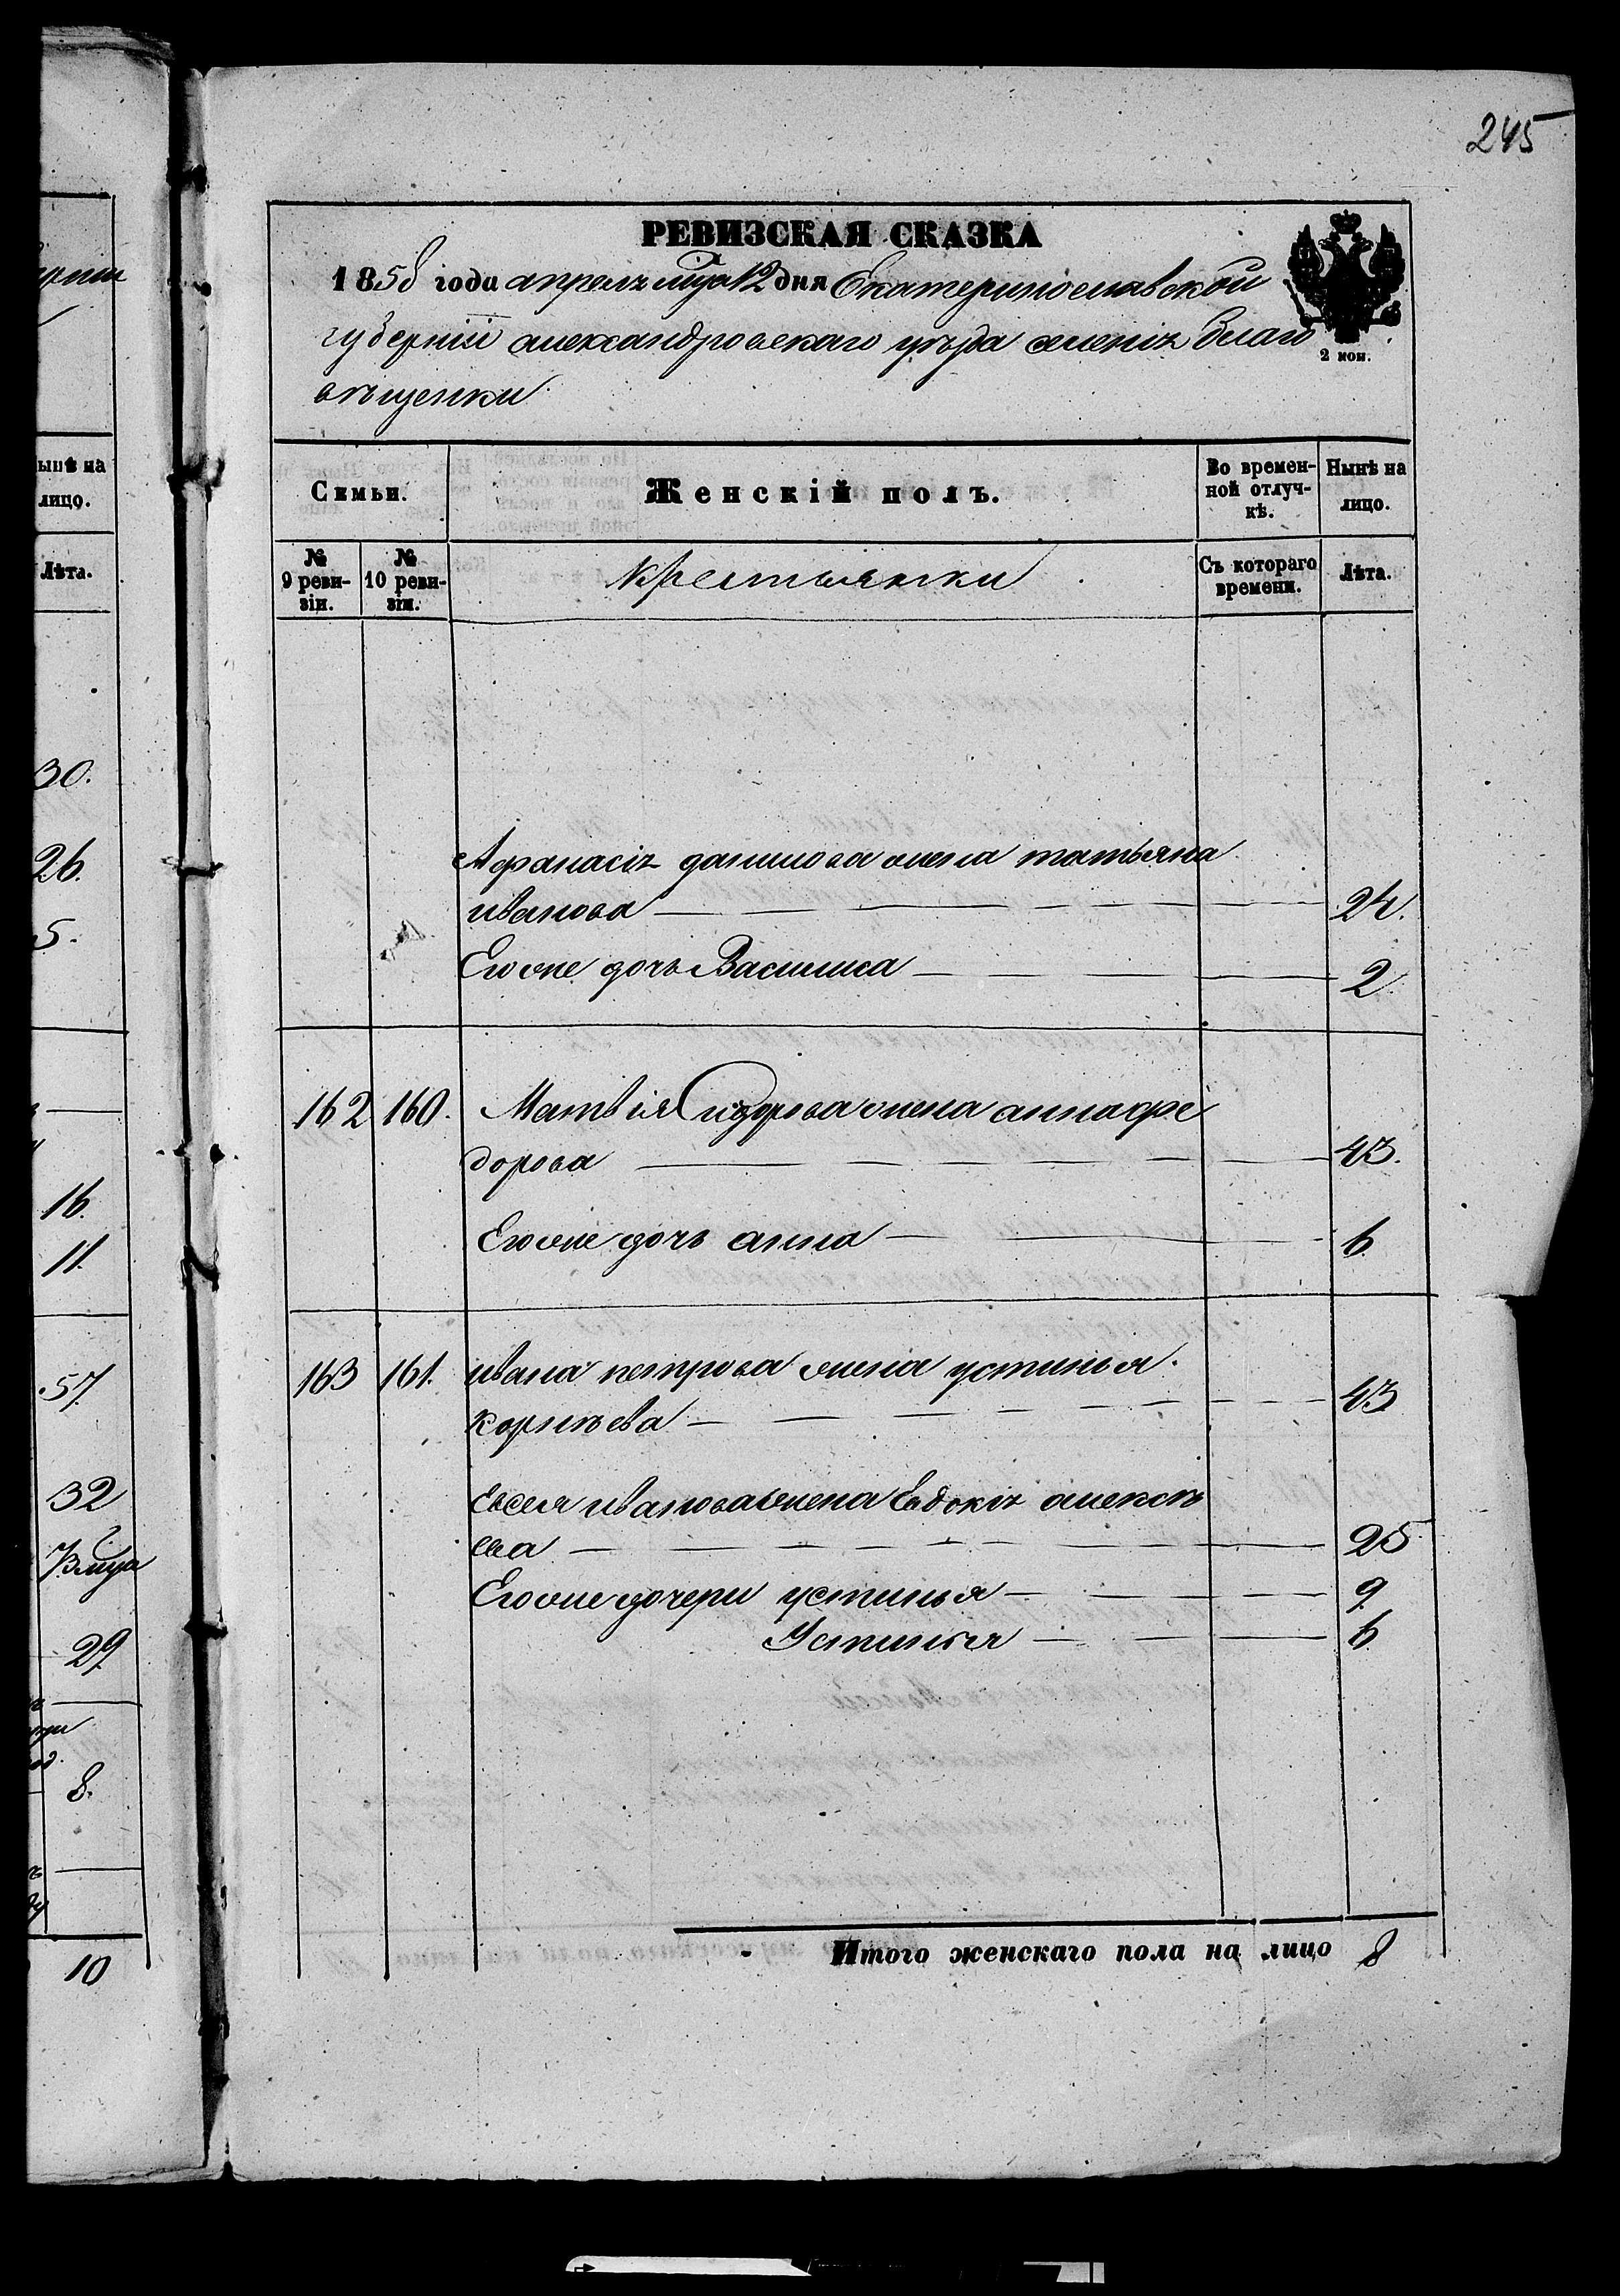 245
РЕВИЗСКАЯ СКАЗКА
1858 года апреля мца 12 дня Екатеринославской
губерніи александровскаго уѣзда имения благо
вѣщенки
2 коп.
Семьи.
Женскій полъ.
Во времен-
ной отлуч-
кѣ.
Нынѣ на
лицо.
№
9 реви-
зіи.
№
10 реви-
зіи.
крестьянки
Съ котораго
времени.
Лѣта.
Афанасія данилова жена татьяна
иванова 24.
Егоже дочь Василиса 2
162 160. Матвія Сидорова жена анна фе
дорова 43.
Егоже дочь анна 6
163 161. ивана петрова жена устинья
Корнѣева 43
Евсея иванова жена Евдокія алексѣ
ева 25
Егоже дочери устинья 9
Устинья 6
Итого женскаго пола на лицо 8
ынѣ на
лицо.
Лѣта.
30.
26.
5.
16.
11.
57.
32
29
8.
10